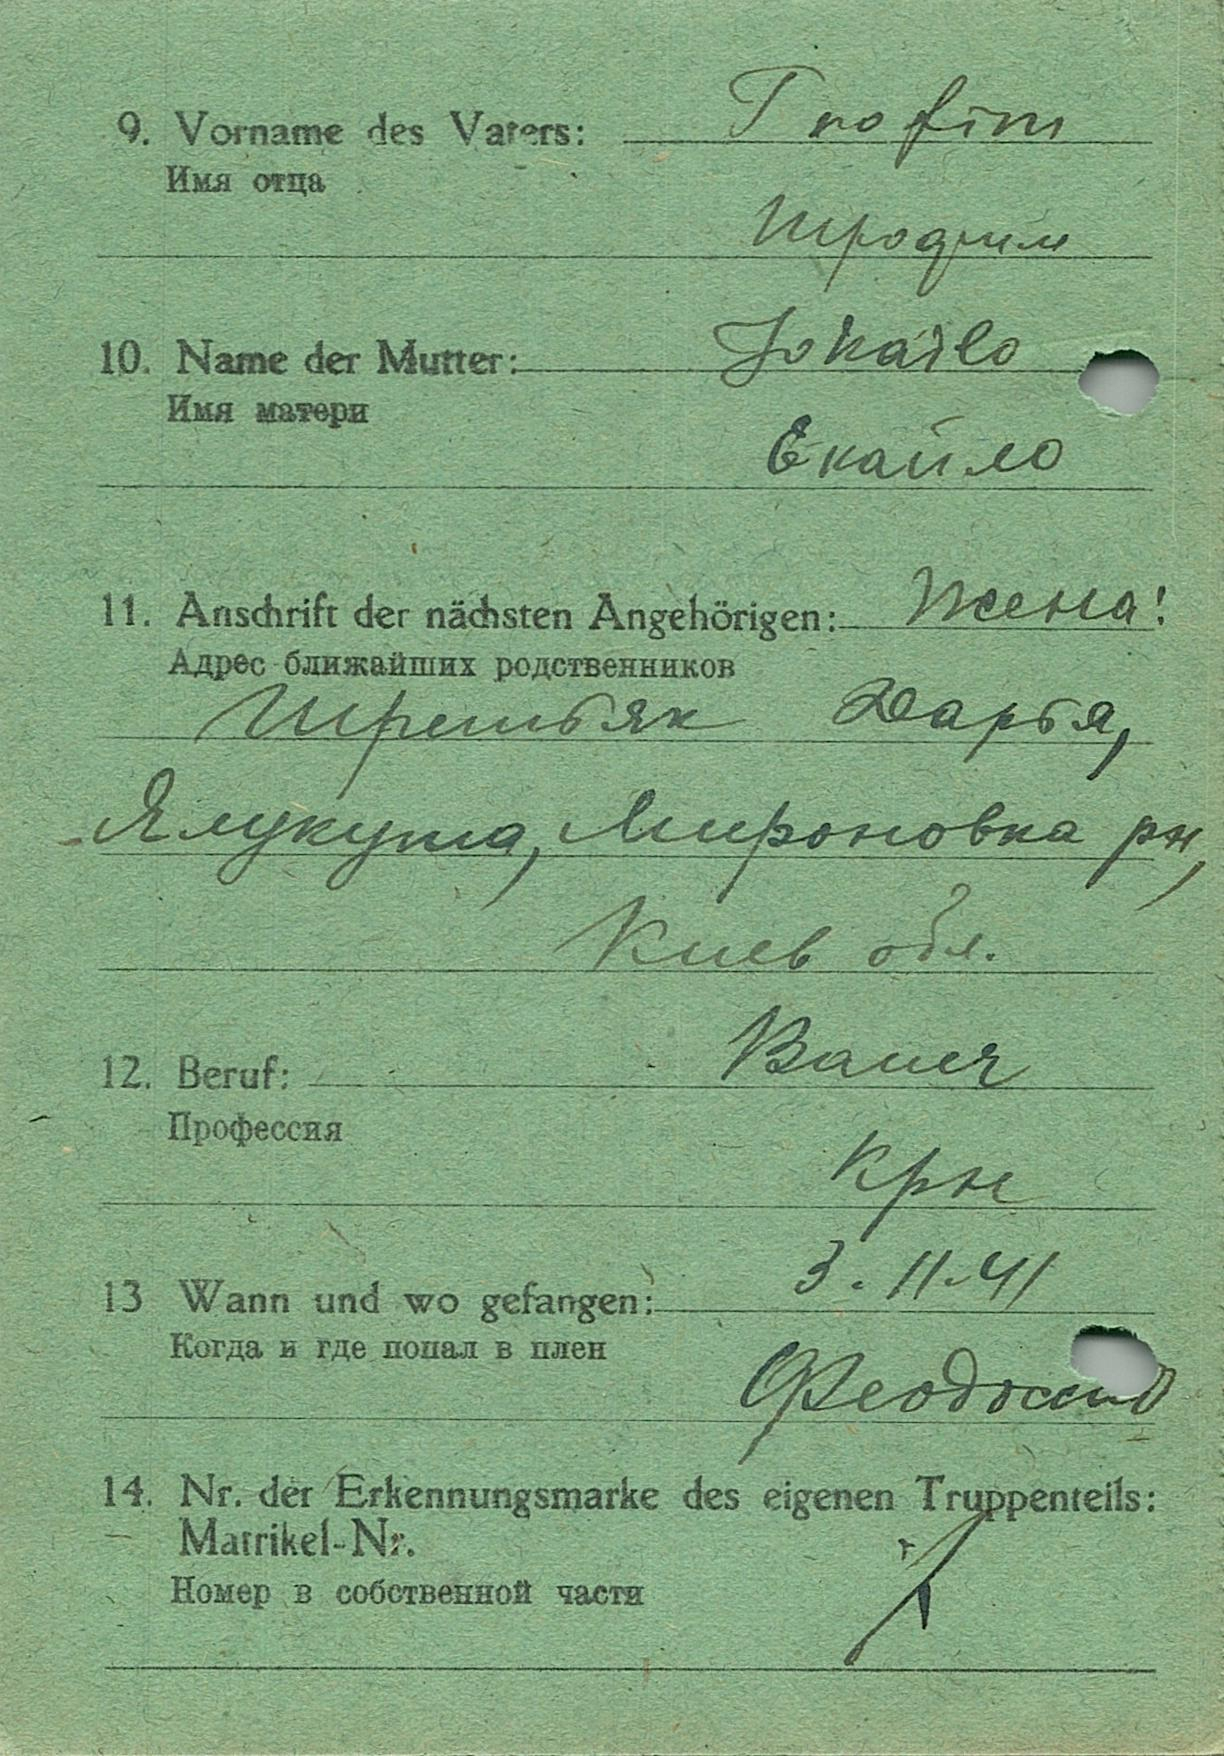 9. Vorname des Vaters: Trofim
Имя отца
Трофим
10. Name der Mutter: Jokailo
Имя матери
Екайло
11. Anschrift der nächsten Angehörigen: Жена:
Адрес ближайших родственников
Третьяк Дарья,
Мироновка рн,
Киев обл.
12. Beruf: Bauer
Профессия
крн
13 Wann und wo gefangen: 3.11.41
Когда и где попал в плен
Феодосия
14. Nr. der Erkennungsmarke des eigenen Truppenteils:
Matrikel-Nr.
Номер в собственной части